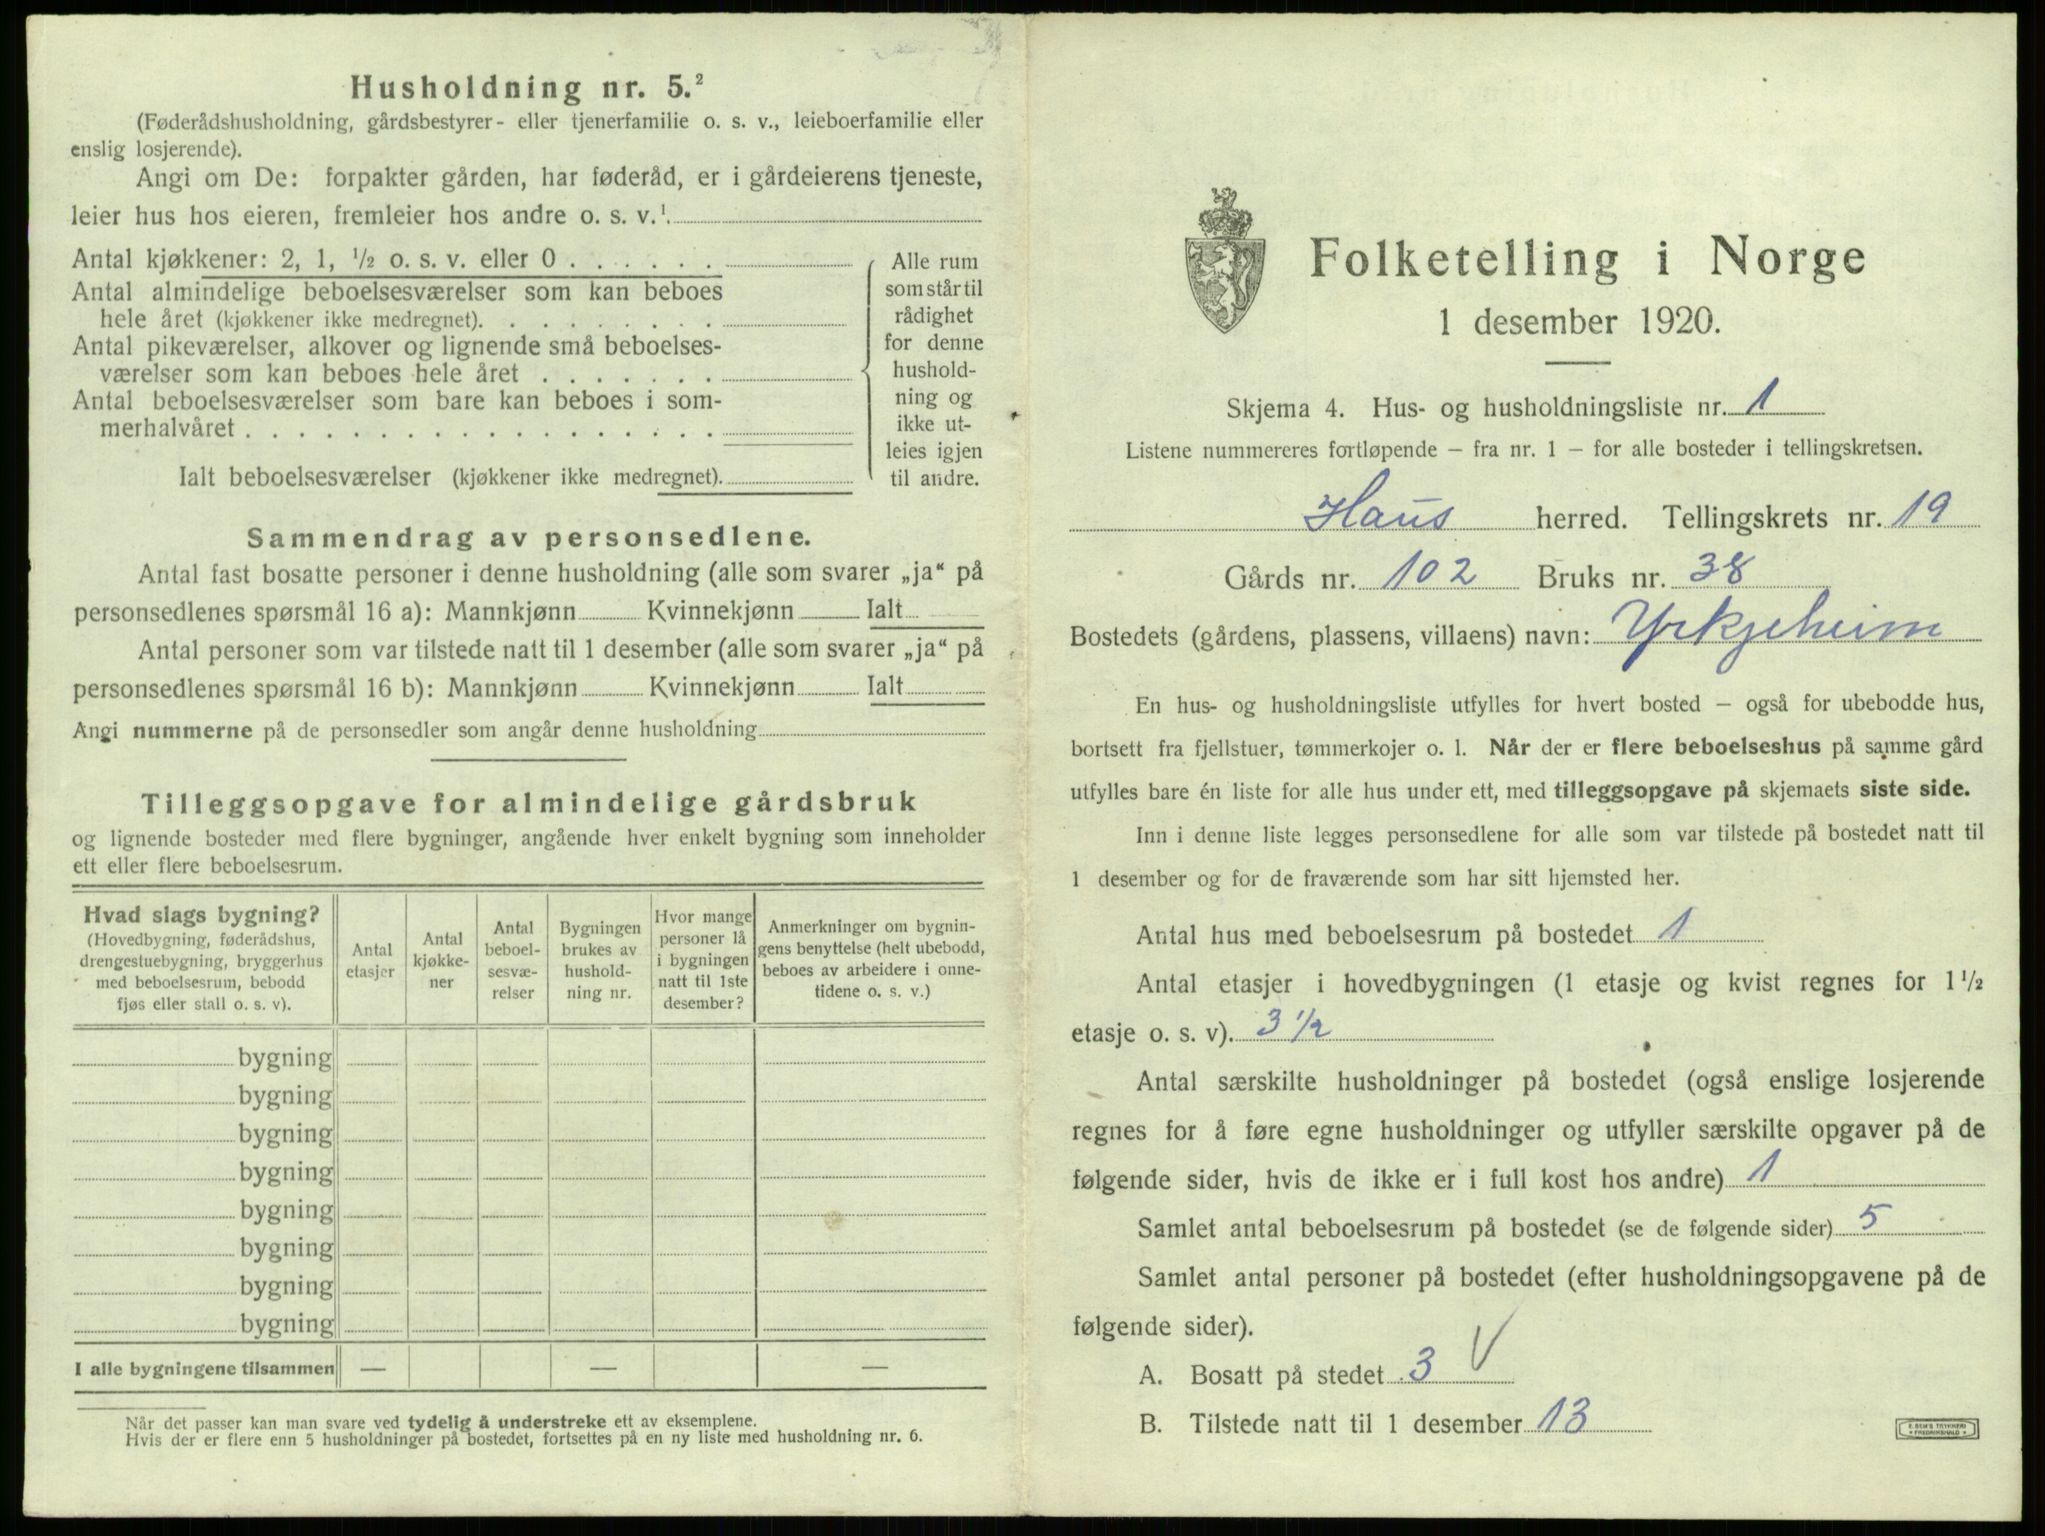 Husholdning nr. 5.²
(Føderådshusholdning, gårdsbestyrer- eller tjenerfamilie o. s. v., leieboerfamilie eller
enslig losjerende).
Angi om De: forpakter gården, har føderåd, er i gårdeierens tjeneste,
leier hus hos eieren, fremleier hos andre o. s. v.¹
Antal kjøkkener: 2, 1, ½ o. s. v. eller 0 . . . . . .
Antal almindelige beboelsesværelser som kan beboes
hele året (kjøkkener ikke medregnet). . . . . . . . .
Antal pikeværelser, alkover og lignende små beboelses-
værelser som kan beboes hele året . . . . . . .
Antal beboelsesværelser som bare kan beboes i som-
merhalvåret . . . . . . . . . . . . . . . . . .
Ialt beboelsesværelser (kjøkkener ikke medregnet).
Alle rum
som står til
rådighet
for denne
hushold-
ning og
ikke ut-
leies igjen
til andre.
Sammendrag av personsedlene.
Antal fast bosatte personer i denne husholdning (alle som svarer „ja“ på
personsedlenes spørsmål 16 a): Mannkjønn Kvinnekjønn Ialt
Antal personer som var tilstede natt til 1 desember (alle som svarer „ja“ på
personsedlenes spørsmål 16 b): Mannkjønn Kvinnekjønn Ialt
Angi nummerne på de personsedler som angår denne husholdning
Tilleggsopgave for almindelige gårdsbruk
og lignende bosteder med flere bygninger, angående hver enkelt bygning som inneholder
ett eller flere beboelsesrum.
Hvad slags bygning?
(Hovedbygning, føderådshus,
drengestuebygning, bryggerhus
med beboelsesrum, bebodd
fjøs eller stall o. s. v).
Antal
etasjer
Antal
kjøkke-
ner
Antal
beboel-
sesvæ-
relser
Bygningen
brukes av
hushold-
ning nr.
Hvor mange
personer lå
i bygningen
natt til 1ste
desember?
Anmerkninger om bygnin-
gens benyttelse (helt ubebodd,
beboes av arbeidere i onne-
tidene o. s. v.)
bygning
bygning
bygning
bygning
bygning
bygning
bygning
bygning
I alle bygningene tilsammen — — —
Når det passer kan man svare ved tydelig å understreke ett av eksemplene.
Hvis der er flere enn 5 husholdninger på bostedet, fortsettes på en ny liste med husholdning nr. 6.
Folketelling i Norge
1 desember 1920.
Skjema 4. Hus- og husholdningsliste nr. 1
Listene nummereres fortløpende – fra nr. 1 – for alle bosteder i tellingskretsen.
Haus herred. Tellingskrets nr. 19
Gårds nr. 102 Bruks nr. 38
Bostedets (gårdens, plassens, villaens) navn: Yrkjeheim
En hus- og husholdningsliste utfylles for hvert bosted – også for ubebodde hus,
bortsett fra fjellstuer, tømmerkojer o. l. Når der er flere beboelseshus på samme gård
utfylles bare én liste for alle hus under ett, med tilleggsopgave på skjemaets siste side.
Inn i denne liste legges personsedlene for alle som var tilstede på bostedet natt til
1 desember og for de fraværende som har sitt hjemsted her.
Antal hus med beboelsesrum på bostedet 1
Antal etasjer i hovedbygningen (1 etasje og kvist regnes for 1½
etasje o. s. v). 3 ½
Antal særskilte husholdninger på bostedet (også enslige losjerende
regnes for å føre egne husholdninger og utfyller særskilte opgaver på de
følgende sider, hvis de ikke er i full kost hos andre) 1
Samlet antal beboelsesrum på bostedet (se de følgende sider) 5
Samlet antal personer på bostedet (efter husholdningsopgavene på de
følgende sider).
A. Bosatt på stedet 3 V
B. Tilstede natt til 1 desember 13
E. SEM'S TRYKKERI
• FREDRIKSHALD •